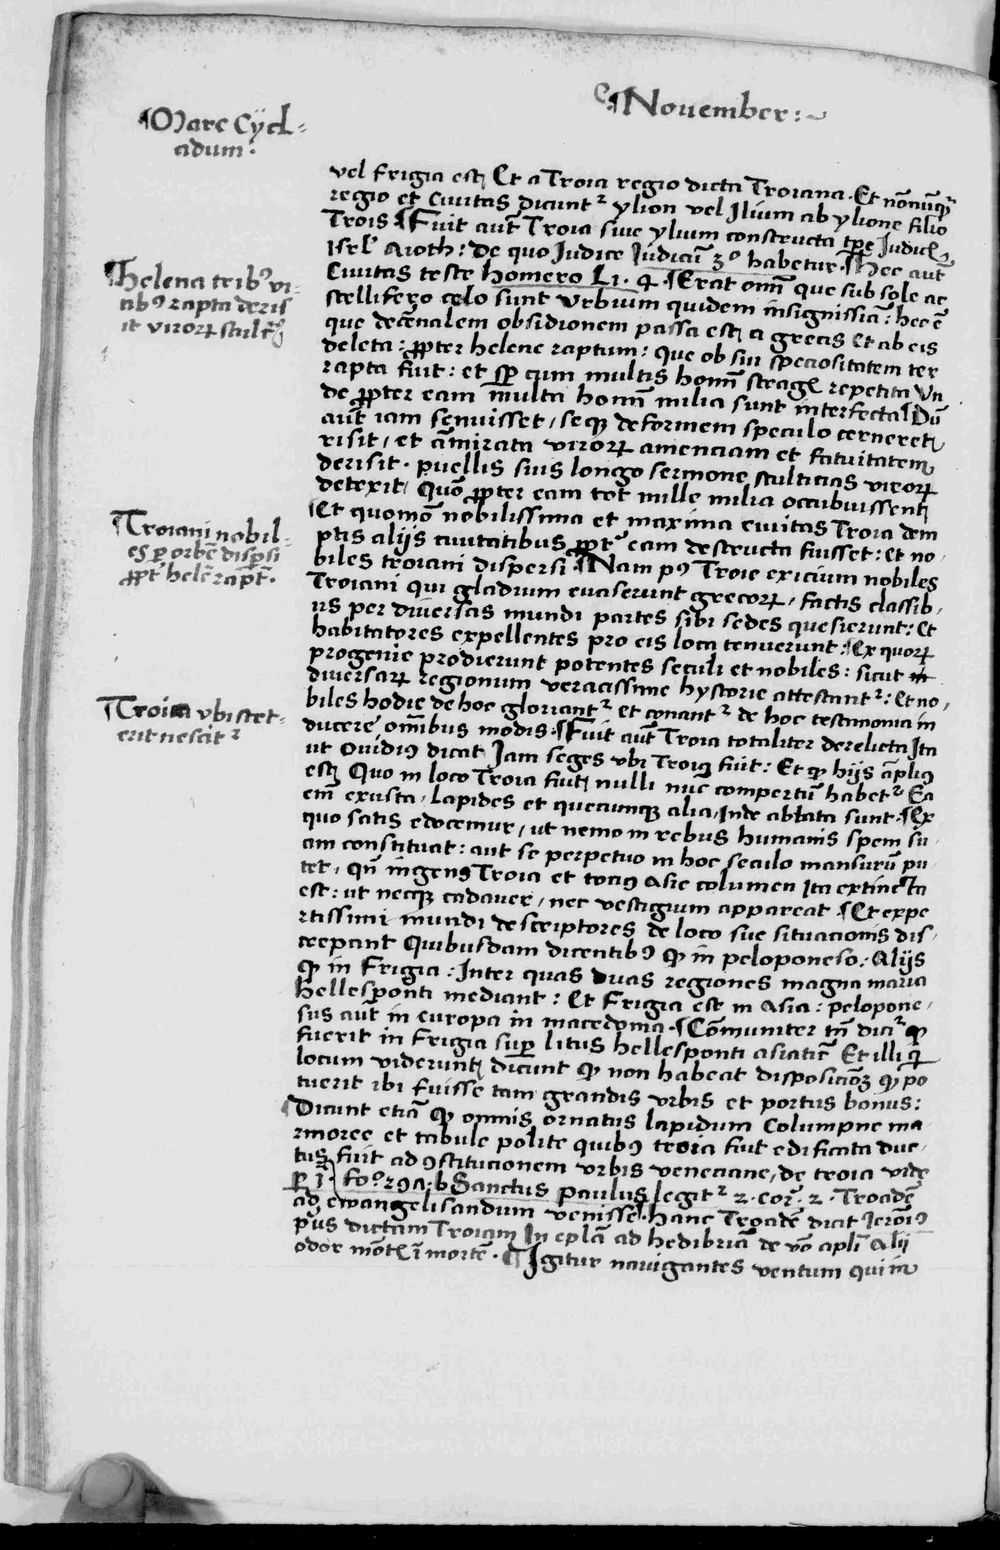 ¶November:~
¶Mare Cycl=
adum:
vel frigia est Et a Troia regio dicta Troiana. Et nōnūqꝫ
regio et civitas dicunt² ylion vel Ilium ab ylione filio
Trois ¶Fuit aut̄ Troia sive ylium constructa tp̄e Judicū
Isrl̄ Aioth: De quo Judice Judicū 3º habetur. ¶Hec aut̄
Civitas teste homero Li. 4. ¶Erat om̄ que sub sole ac
stellifero celo sunt vrbium quidem insignissīa: hec ē
que decēnalem obsidionem passa est a grecis Et ab eis
deleta: ꝓpter helene raptum: que ob sui speciositatem ter
rapta fuit: et sꝑ cum multis hoīm strage repetita Vn
de ꝓpter eam multa hoīm milia sunt interfecta ¶Dū
aut̄ iam senuisset, seqꝫ deformem speculo cerneret
risit, et āmirata virorꝝ amenciam et fatuitatem
derisit. puellis suis longo sermone stulticias virorꝝ
detexit, Quō ꝓpter eam tot mille milia occubuissent
¶Et quomō nobilissima et maxima civitas Troia dem
ptis alijs civitatibus ꝓpt² eam destructa fuisset: Et no
biles troiani dispersi ¶Nam pꝰ Troie exicium nobiles
Troiani qui gladium evaserunt grecorꝝ, factis classib,
us per diversas mundi partes sibi sedes quesierunt: Et
habitatores expellentes pro eis loca tenuerunt: ¶Ex quorꝝ
progenie prodierunt potentes seculi et nobiles: sicut in
diversarꝝ regionum veracissime hystorie attestant²: Et no,
biles hodie de hoc gloriant² et conant² de hoc testimonia in
ducere om̄ibus modis. ¶Fuit aut̄ Troia totaliter derelicta Ita
ut Ouidius dicat Jam seges vbi Troia fuit: Et qꝫ hijs āpliꝰ
est Quo in loco Troia fuit nulli nūc compertū habet². Ea
em̄ exusta, lapides et quecumqꝫ alia, Inde ablata sunt. ¶Ex
quo satis edocemur, ut nemo in rebus humanis spem su
am constituat: aut se perpetuo in hoc seculo mansurū pu
tet, qn̄ ingens Troia et totiꝰ Asie columen Ita extincta
est: ut necqꝫ cadaver, nec vestigium appareat. ¶Et expe
rtissimi mundi descriptores de loco sue situacionis dis,
crepant Quibusdam dicentibꝰ qꝫ in peloponeso: Alijs
qꝫ in Frigia: Inter quas duas regiones magna maria
hellesponti mediant: Et Frigia est in Asia: pelopone,
sus aut̄ in europa in macedonia. ¶Cōmuniter tn̄ dicit² qꝫ
fuerit in Frigia suꝑ litus hellesponti asiatic̄ Et illi qꝫ
locum viderunt dicunt qꝫ non habeat disposicionē qꝫ po
tuerit ibi fuisse tam grandis vrbis et portus bonus:
¶Dicunt etiā qꝫ omnis ornatus lapidum Columpne ma,
rmoree et tabule polite quibꝰ troia fuit edificata duc,
tus fuit ad ꝯstitucionem vrbis veneciane, de troia vide
ꝑ I. fo. 29 A. b Sanctus Paulus legit² 2. cor. 2. Troadē
ad ewangelisandum venisse. hanc Troadē dicit Jeronīꝰ
prius dictam Troiam In eplā ad hedibriā de vō apl̄i Alij
odor mōt̄ ī mortē. ¶Igitur navigantes ventum qui in
¶Helena tribꝰ vi=
cibꝰ rapta deris
it virorꝝ stult̄
¶Troiani nobil=
es ꝑ orbē dispersi
ꝓpt² helē rapt̄.
¶Troia vbi stet=
erit nescit²